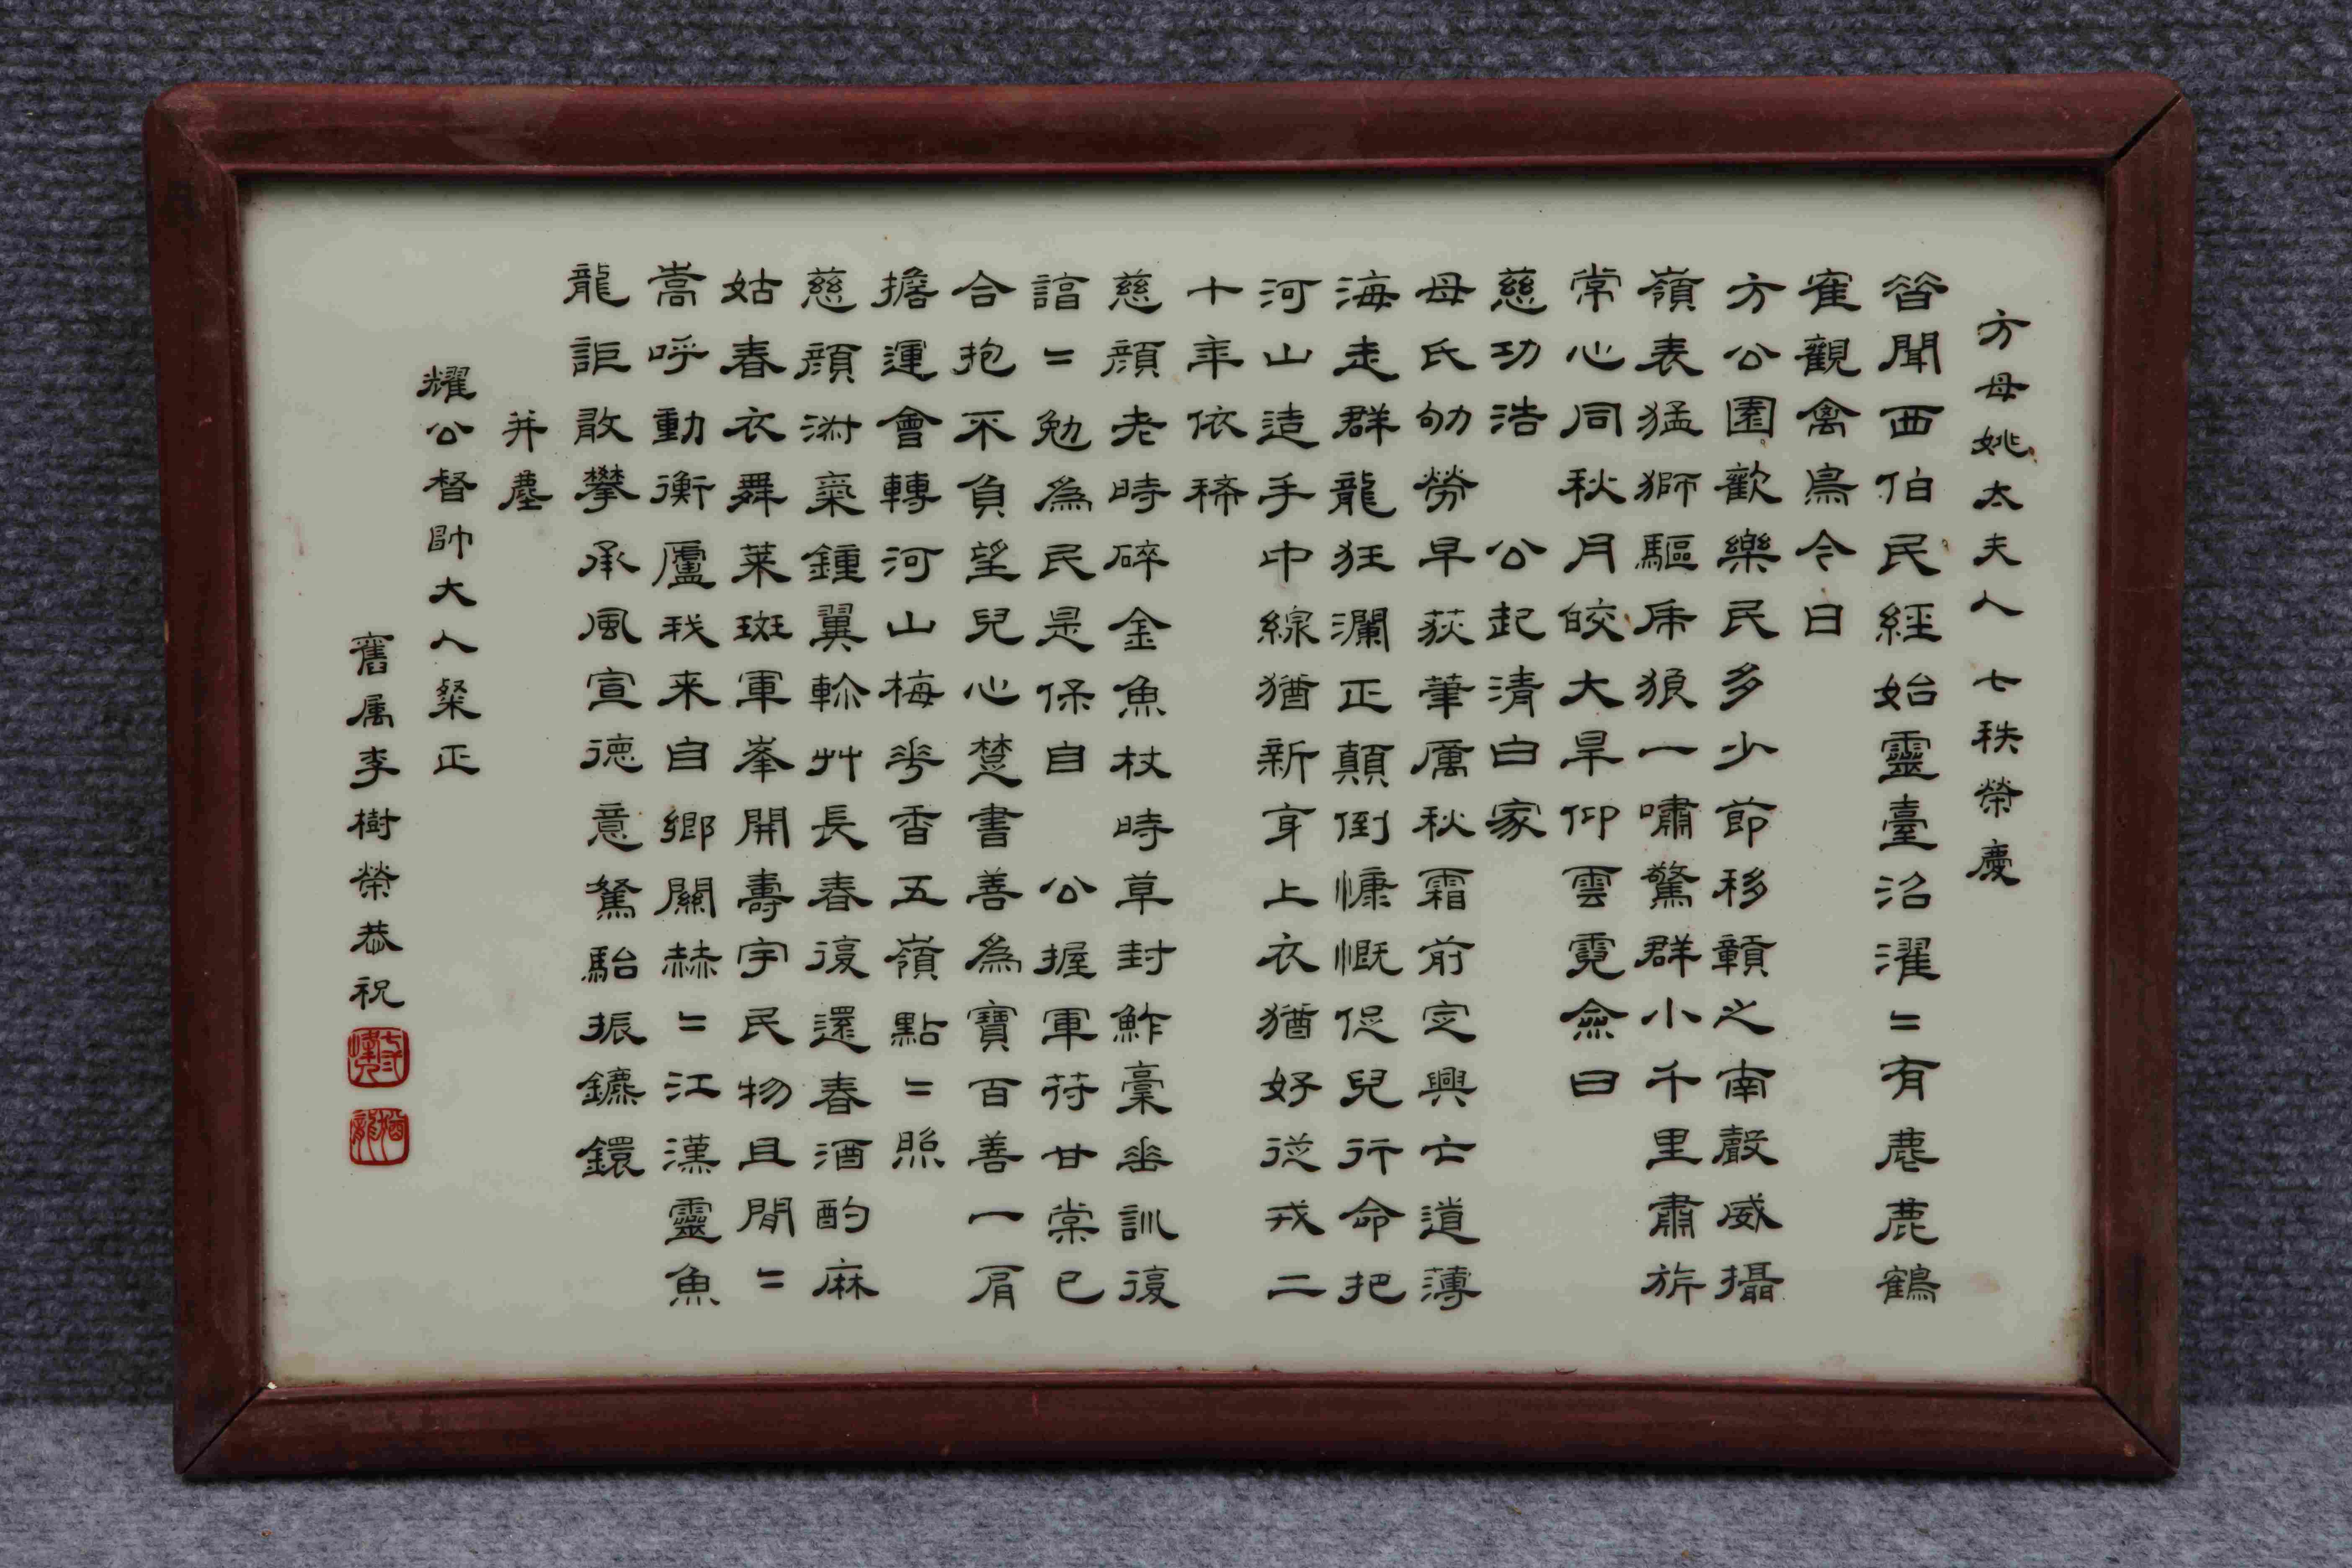 方母姚太夫人 七秩榮慶
昔聞西伯民經始靈臺沼濯〻有麀鹿鶴
寉觀禽鳥今日
方公園歡樂民多少節移贛之南嚴威攝
嶺表猛獅驅乕狼一嘯驚群小千里肅旂
常心同秋月皎大旱仰雲霓僉曰
慈功浩 公起清白家
母氏劬勞早荻筆厲秋霜前定興亡道薄
海走群龍狂瀾正顛倒慷慨促兒行命把
河山造手巾線猶新身上衣猶好從戎二
十年依稀
慈顏老時碎金魚杖時草封鮓稾垂訓復
諳〻勉為民是保自 公握軍符甘棠已
合抱不負望兒心楚書善為寶百善一肩
擔運會轉河山梅花香五嶺點〻照
慈顏澍氣鍾翼軫艸長春復還春酒酌麻
姑春衣舞萊斑軍峯開壽宇民物且閒〻
嵩呼動衡廬我来自鄉關赫〻江漢靈魚
龍詎敢攀承風宣德意駑駘振鑣鐶
并塵
耀公督帥大人粲正
舊属李樹榮恭祝